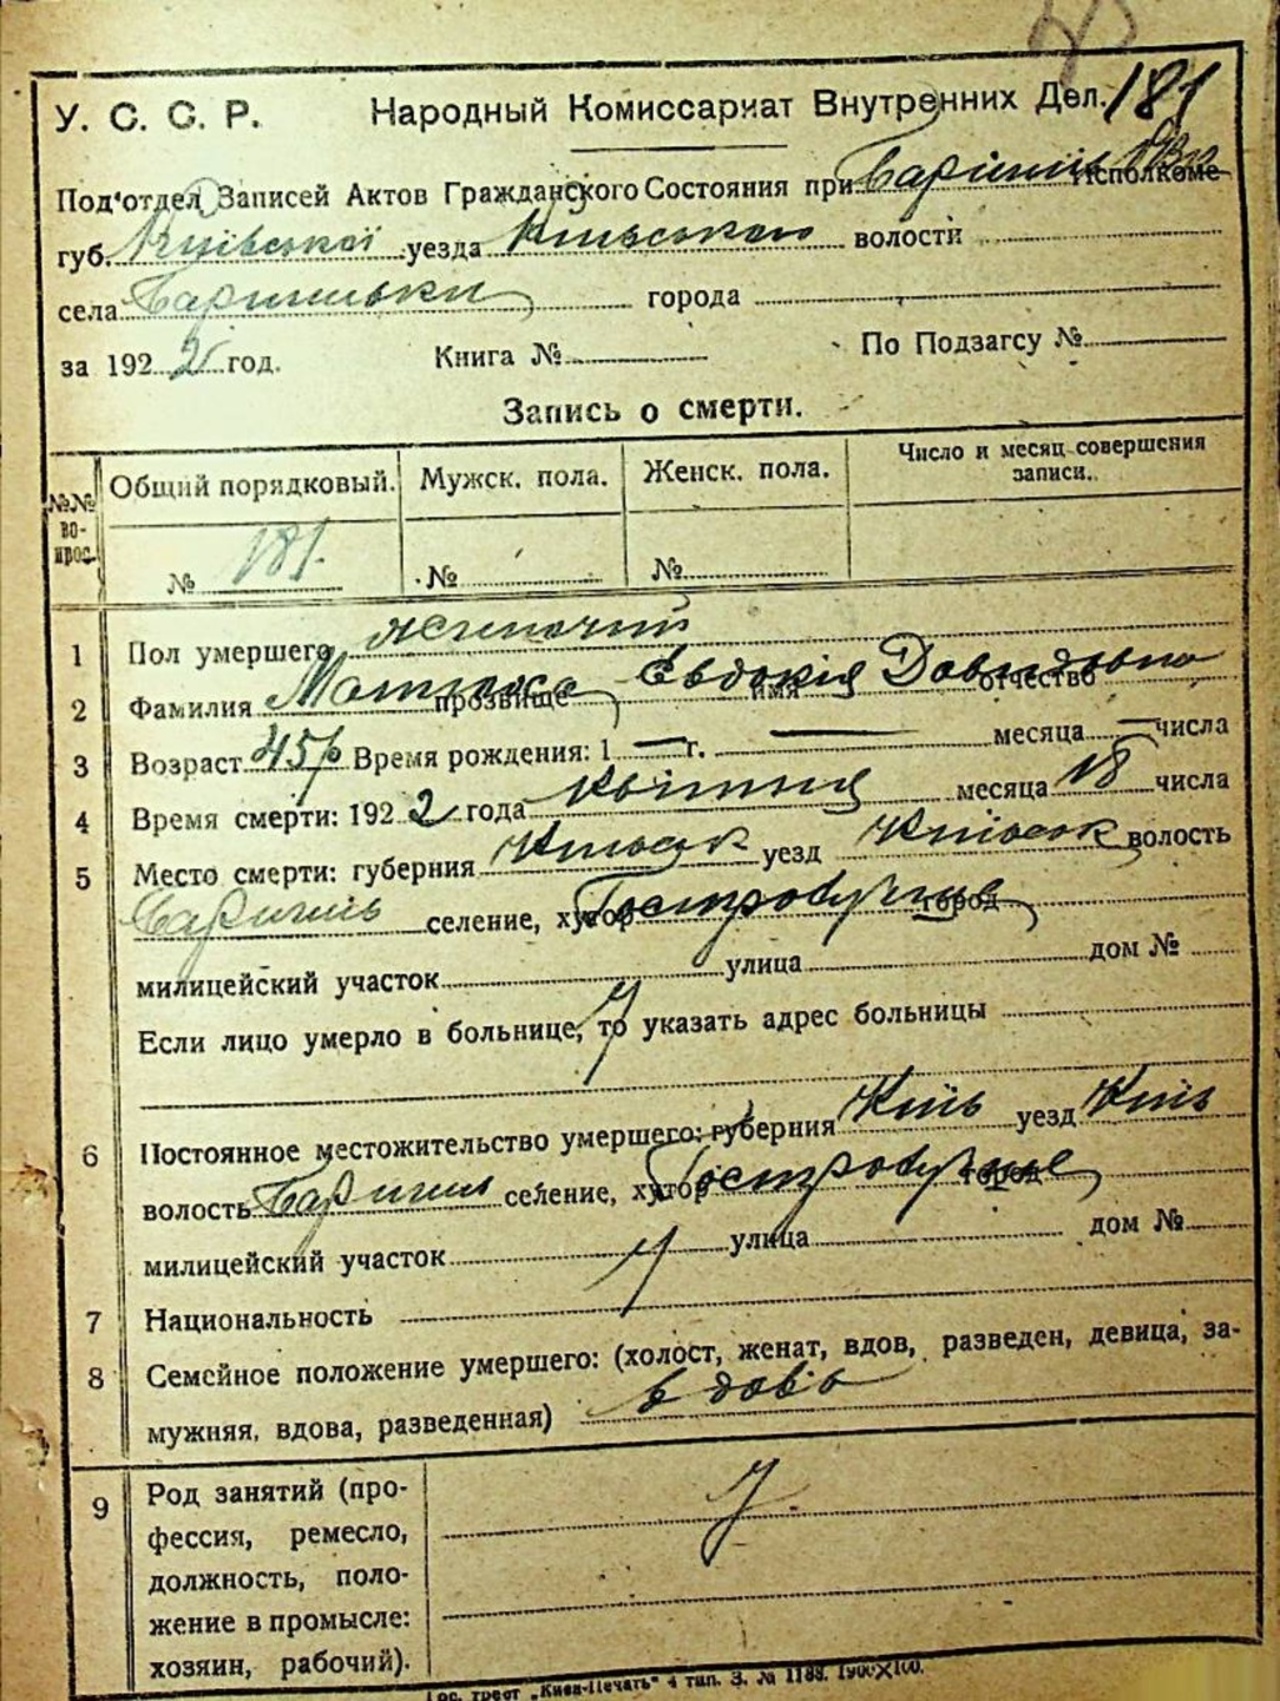 У. С. С. Р. Народный Комиссариат Внутренних Дел. 181
Под‘отдел Записей Актов Гражданского Состояния при Исполкоме
губ. Київської уезда Київського волости
села города
за 192 2 год. Книга № По Подзагсу №
Запись о смерти.
№№ во-прос. Общий порядковый. Мужск. пола. Женск. пола. Число и месяц совершения записи.
№ 181. № №
1 Пол умершего жиночий
2 Фамилия прозвище Евдокія имя Давидовна отчество
3 Возраст 45 р Время рождения: 1 — г. — месяца — числа
4 Время смерти: 192 2 года квітня месяца 18 числа
5 Место смерти: губерния уезд волость
селение, хутор город
милицейский участок улица дом №
Если лицо умерло в больнице, то указать адрес больницы
6 Постоянное местожительство умершего: губерния Київ уезд Київ
волость селение, хутор город
милицейский участок улица дом №
7 Национальность
8 Семейное положение умершего: (холост, женат, вдов, разведен, девица, за-
мужняя, вдова, разведенная) вдова
9 Род занятий (про-
фессия, ремесло,
должность, поло-
жение в промысле:
хозяин, рабочий).
Гос. трест „Киев-Печать“ 4 тип. З. № 1188. 1900×100.